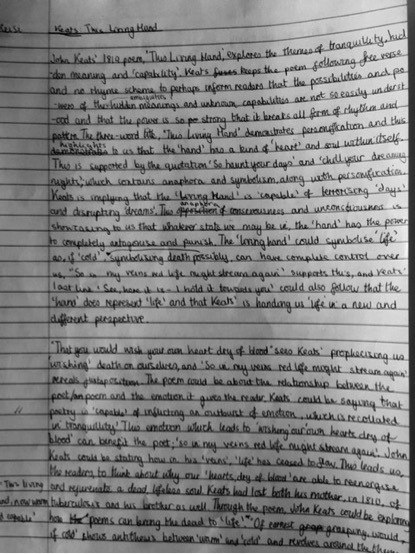 Keats This Living Hand
John Keats' 1819 poem, 'This Living Hand', explores the themes of tranquillity, hid
-den meaning and 'capability'. Keats keeps the poem following free verse
and no rhyme scheme to perhaps inform readers that the possibilities and po
-wers of the hidden ambiguities meanings and unknown capabilities are not so easily underst
-ood and that the power is so strong that it breaks all form of rhythm and
pattern. The three-word title, 'This Living Hand' demonstrates personification and thus
highlights to us that the 'hand' has a kind of 'heart' and soul within itself.
This is supported by the quotation 'So haunt your days' and 'chill your dreaming
nights', which contains anaphora and symbolism, along with personification.
Keats is implying that the 'Living Hand' is 'capable' of terrorising 'days'
and disrupting 'dreams'. This of consciousness and unconsciousness is
showcasing to us that whatever state we may be in, the 'hand' has the power
to completely antagonise and punish. The 'living hand' could symbolise 'life'
as, if 'cold', symbolising death possibly, can have complete control over
us, "So in my veins red life might stream again' supports this, and Keats'
last line 'See, here it is - I hold it towards you' could also follow that the
'hand' does represent 'life' and that Keats' is handing us 'life' in a new and
different perspective.
'That you would wish your own heart dry of blood' sees Keats' prophecising us
'wishing' death on ourselves, and 'So in my veins red life might stream again'
reveals juxtaposition. The poem could be about the relationship between the
poet/an poem and the emotion it gives the reader. Keats could be saying that
poetry is 'capable' of inflicting an outburst of emotion, which is recollected
in tranquillity. This emotion which leads to 'wishing' our own 'hearts dry of
blood' can benefit the poet, 'so in my veins red life might stream again'. John
Keats could be stating how in his 'veins', 'life' has ceased to flow. This leads us,
the readers, to think about why our 'hearts, dry of blood' are able to reenergise
and rejuvenate a dead, lifeless soul. Keats had lost both his mother, in 1810, of
tuberculosis and his brother as well. Through the poem, John Keats could be exploring
how the poems can bring the dead to 'life'.* Of earnest grasping would,
if cold' shows antithesis between 'warm' and 'cold' and revolves around the
*This living
hand, now warm
and capable'